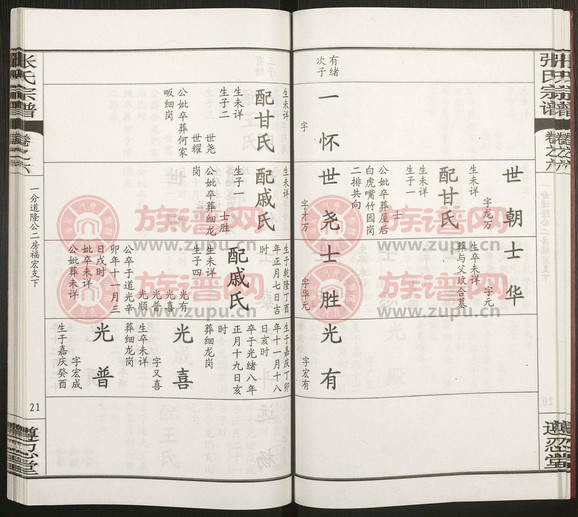 张氏宗谱
卷之六
遵忍堂
世朝
字龙万
生未详
配甘氏
生子一
士
公妣卒葬屋后
白虎嘴竹园岗
二排共向
士华
字元
生卒未详
葬与父坟合墓
有绪
次子
一怀
字
世尧
字才万
士胜
字华元
光有
字宏有
生未详
配甘氏
生子二
世尧
世耀
公妣卒葬何家
畈细岗
生未详
配戚氏
生子一
士胜
公妣卒葬细龙
岗
生于乾隆丁酉
年正月七日吉
时
配戚氏
生未详
生子四
光有
光喜
光顺
公卒于道光辛
卯年十一月三
日戌时
妣卒未详
公妣葬未详
生于嘉庆丁卯
年十一月十八
日亥时
卒于光绪八年
正月十九日亥
时
葬细龙岗
光喜
字又喜
生卒未详
葬细龙岗
光普
字宏成
生于嘉庆癸酉
张氏宗谱
卷之六
一分道隆公二房福宏支下
21
遵忍堂
族谱网
www.zupu.cn
族谱网
www.zupu.cn